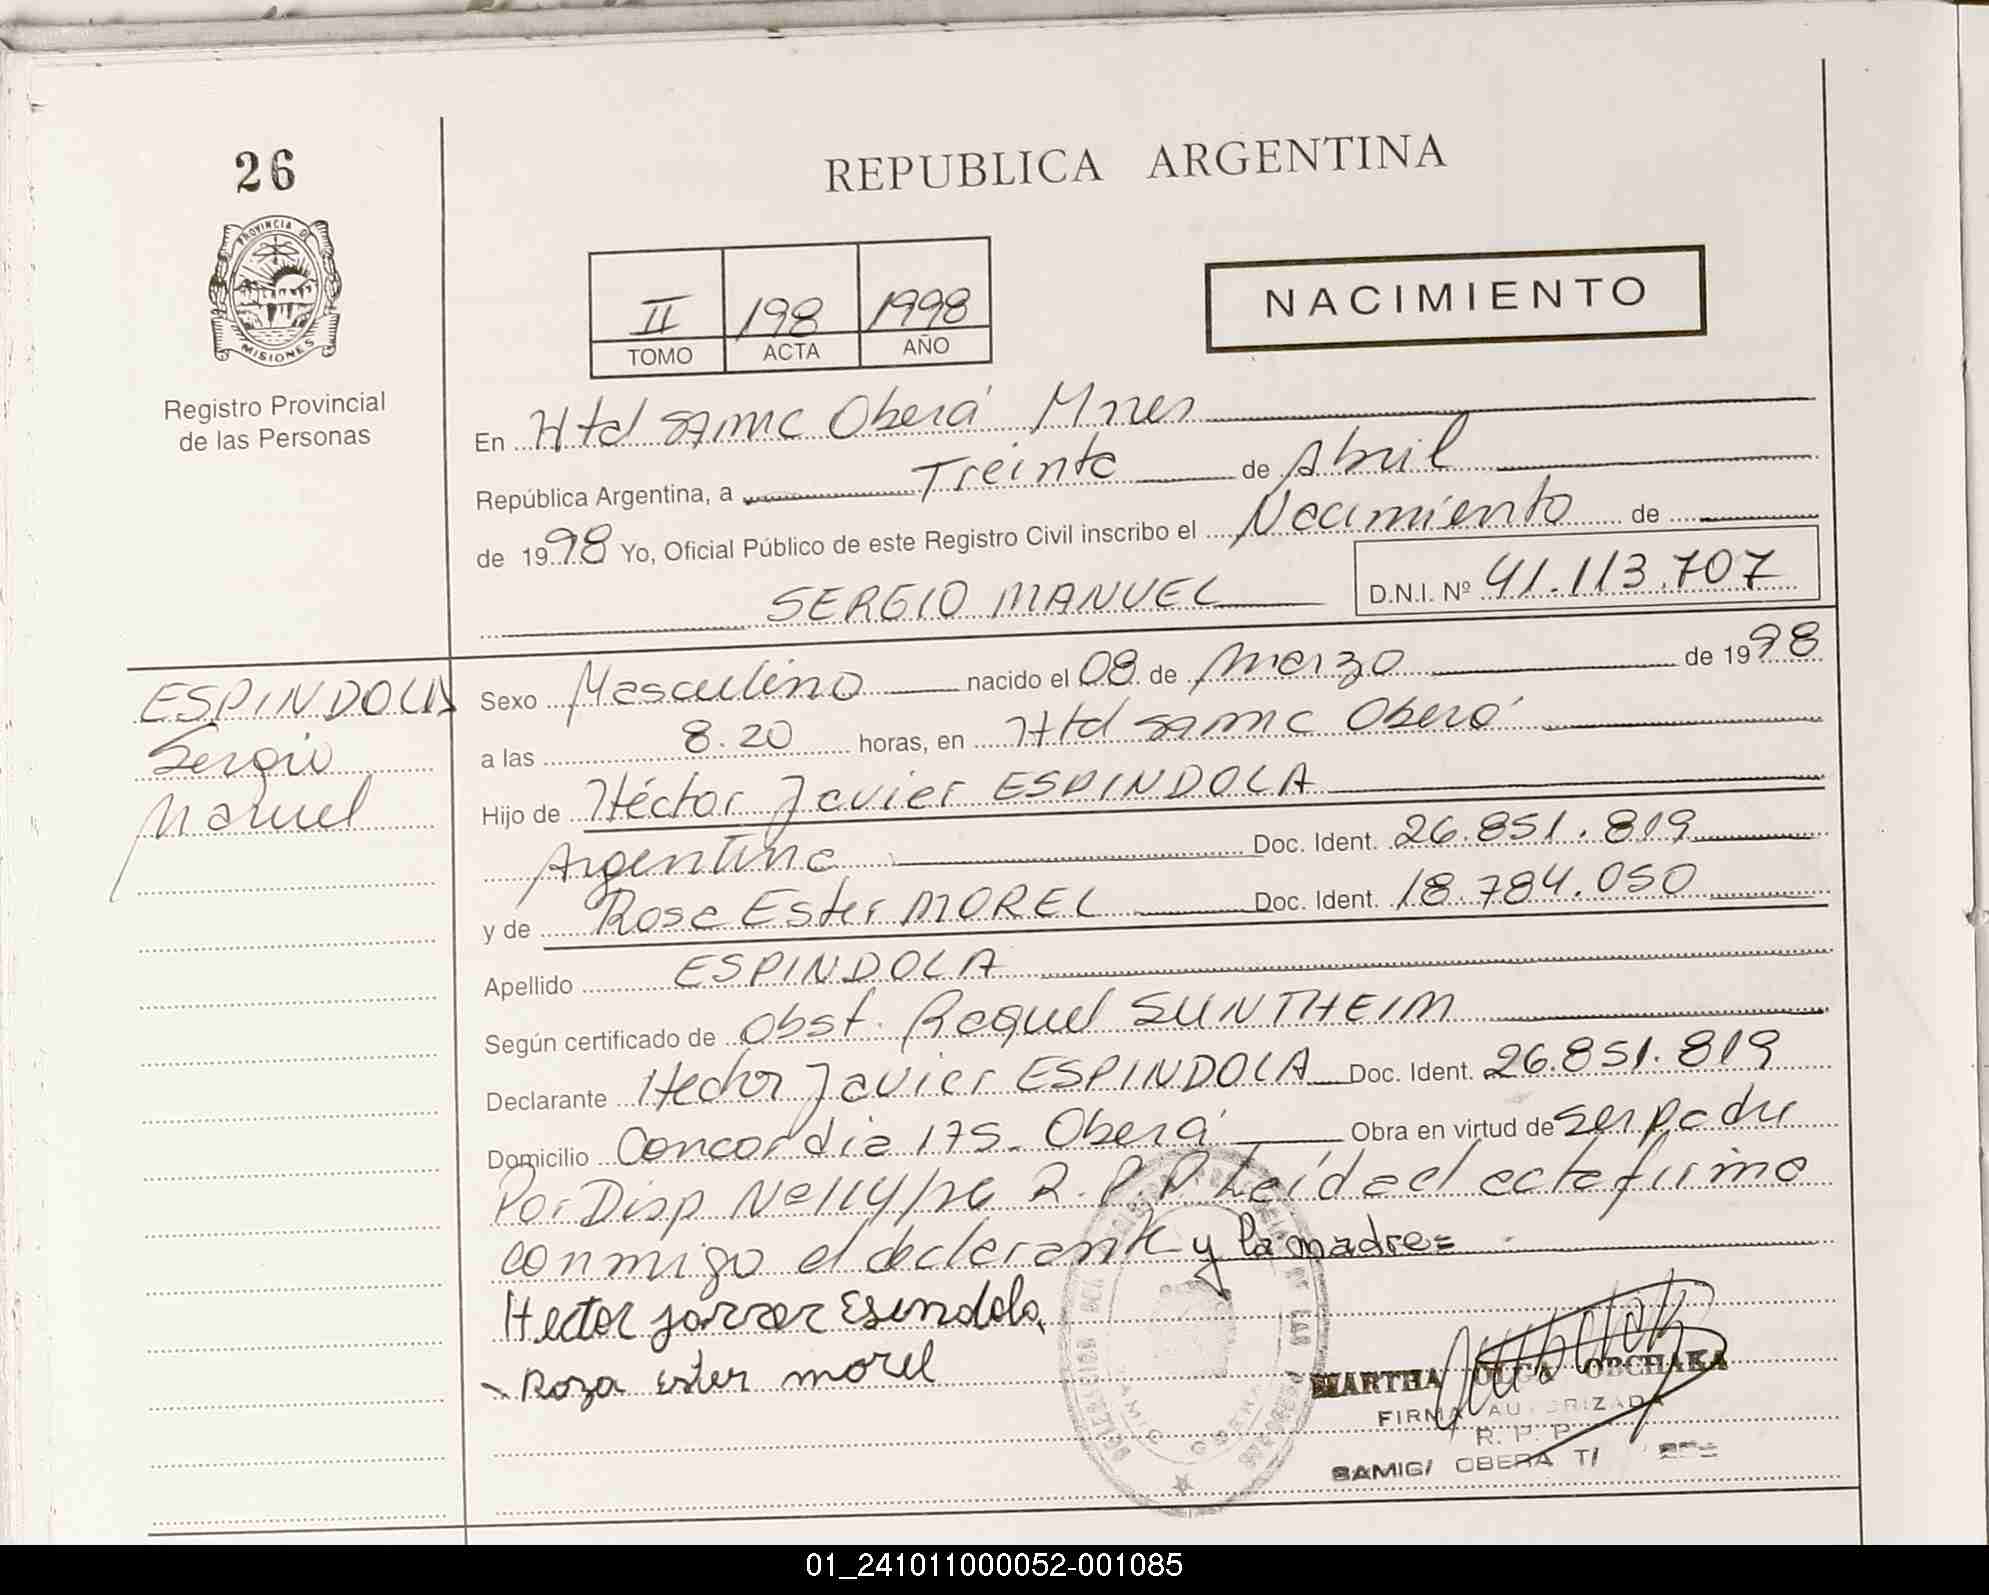 26
REPUBLICA ARGENTINA
PROVINCIA D
MISIONES
Registro Provincial
de las Personas
II 198 1998
TOMO ACTA AÑO
NACIMIENTO
En Htal SAMIC Oberá Mnes
República Argentina, a Treinta de Abril
de 1998 Yo, Oficial Público de este Registro Civil inscribo el Nacimiento de
SERGIO MANUEL D.N.I. Nº 41.113.707
ESPINDOLA
Sergio
Manuel
Sexo Masculino nacido el 08 de Marzo de 1998
a las 8.20 horas, en Htal SAMIC Oberá
Hijo de Héctor Javier ESPINDOLA
Argentina Doc. Ident. 26.851.819
y de Rosa Ester MOREL Doc. Ident. 18.784.050
Apellido ESPINDOLA
Según certificado de Obst. Raquel SUNTHEIM
Declarante Hector Javier ESPINDOLA Doc. Ident. 26.851.819
Domicilio Concordia 175. Oberá Obra en virtud de ser padre
Por Disp R.P.P. Leída el acta firma
conmigo el declarante y la madre=
Hector Esindola
Roza ester morel
MARTHA OLGA OBCHAKA
FIRMA AUTORIZADA
R. P. P.
SAMIC/ OBERA T/
01_241011000052-001085